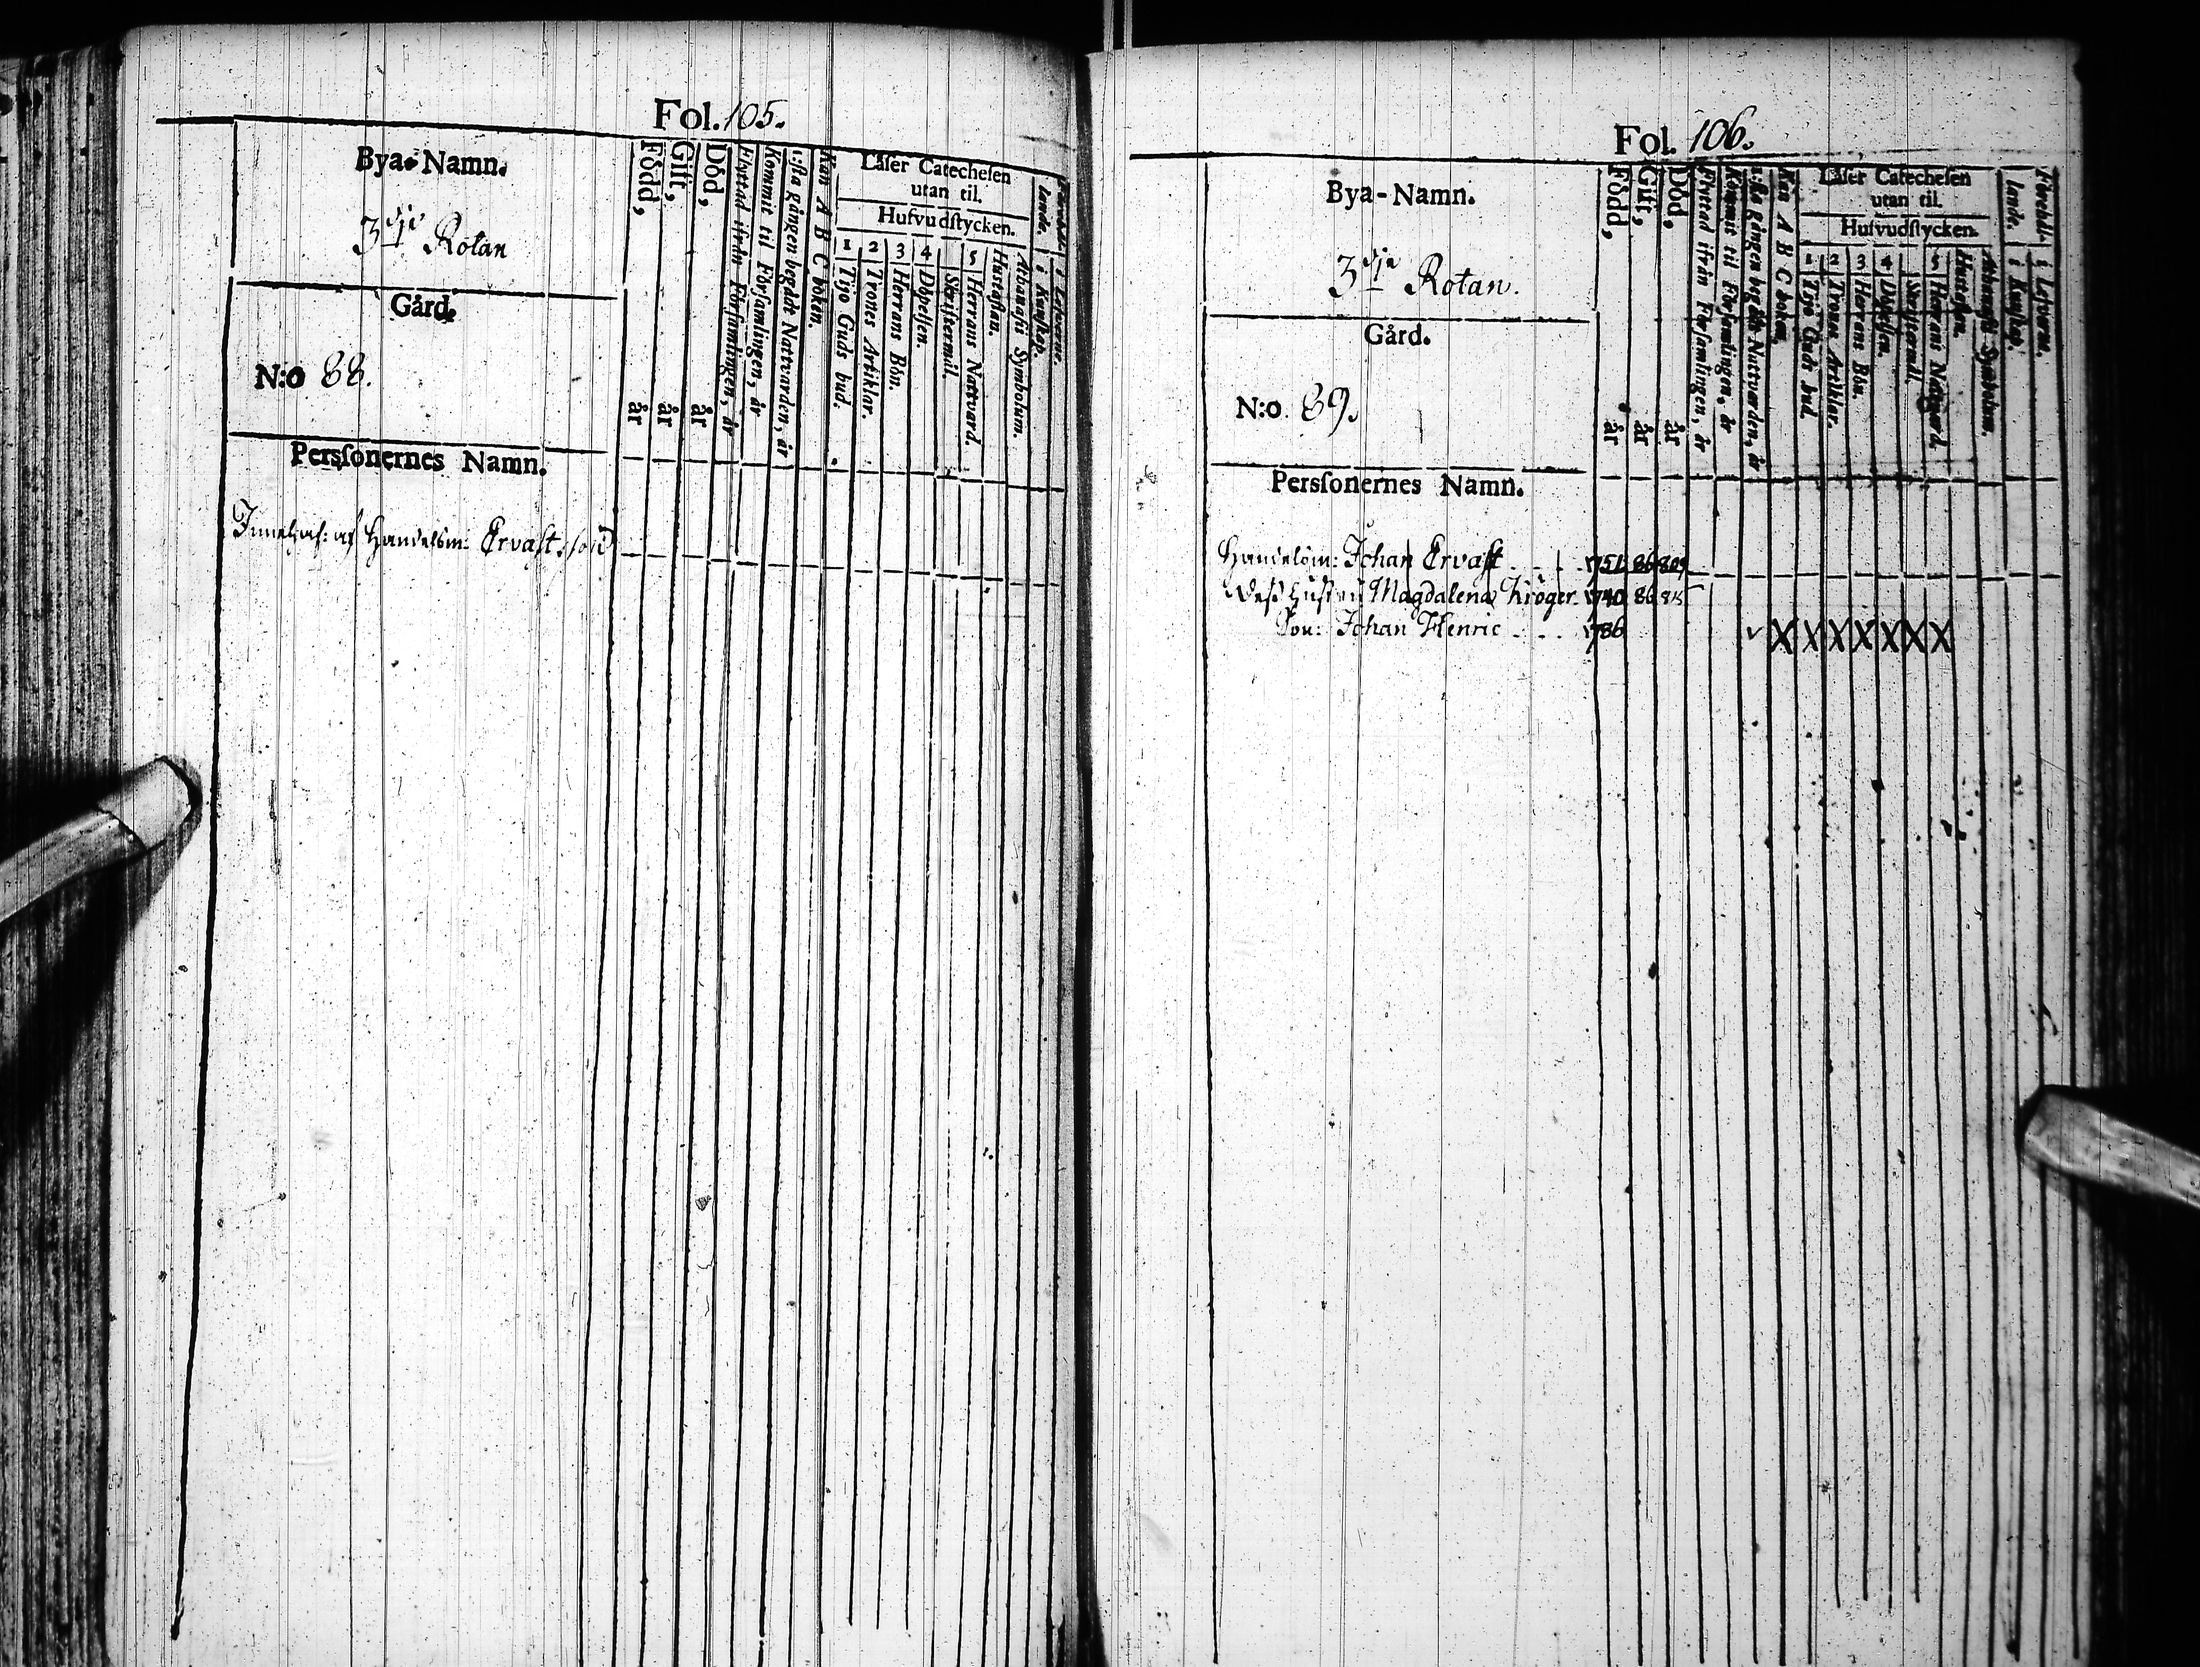 Fol. 105.
Bya-Namn.
3dje Rotan
Gård.
N:o 88.
Persſonernes Namn.
Född, år
Gift, år
Död, år
Flyttad ifrån Förſamlingen, år
Kommit til Förſamlingen, år
1:ſta gången begådt Nattvarden, år
Kan A B C boken.
Läſer Catecheſen
utan til.
Hufvudſtycken.
1 Tijo Guds bud.
2 Trones Artiklar.
3 Herrans Bön.
4 Döpelſen.
Skriftermål.
5 Herrans Nattvard.
Huſtaflan.
Athanaſii Symbolum.
i Kunſkap.
i Lefverne.
Innehaf: af Handelsm: Ervast
Fol. 106.
Bya-Namn.
3dje Rotan.
Gård.
N:o 89.
Persſonernes Namn.
Född, år
Gift, år
Död, år
Flyttad ifrån Förſamlingen, år
Kommit til Förſamlingen, år
1:ſta gången begådt Nattvarden, år
Kan A B C boken.
Läſer Catecheſen
utan til.
Hufvudſtycken.
1 Tijo Guds bud.
2 Trones Artiklar.
3 Herrans Bön.
4 Döpelſen.
Skriftermål.
5 Herrans Nattvard.
Huſtaflan.
Athanaſii Symbolum.
Förehåll-
lande. i Kunſkap.
i Lefverne.
Handelsm: Johan Ervast 1751 86 809
Dess hustru Magdalena Kröger 1740 86 815
Son: Johan Henric 1786 X X X X X X X